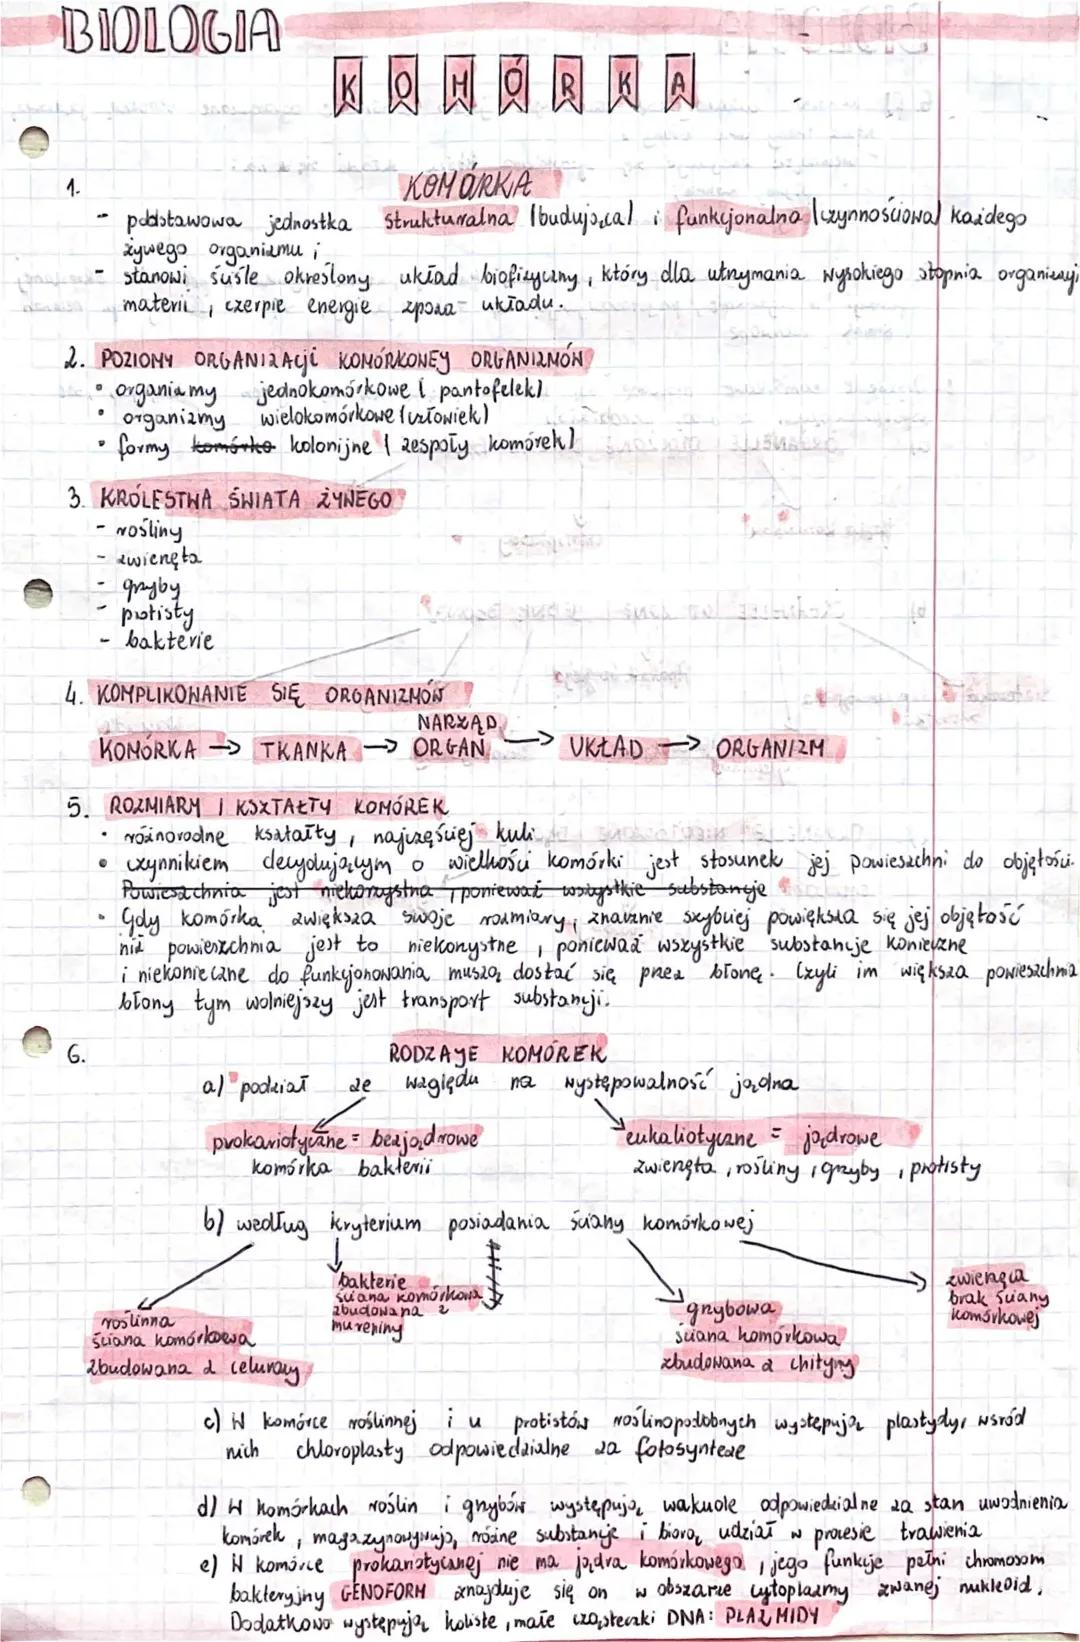 BIOLOGIA
KOMÓRKA
1. KOMÓRKA
- poddstawowa jednostka strukturalna (budująca) i funkcjonalna (czynnościowa) każdego
żywego organizmu ;
- stanowi ściśle określony układ biofizyczny, który dla utrzymania wysokiego stopnia organizacji
materii, czerpie energie zpoza układu.
2. POZIOMY ORGANIZACJI KOMÓRKOWEJ ORGANIZMÓW
• organizmy jednokomórkowe (pantofelek)
• organizmy wielokomórkowe (człowiek)
• formy komórko kolonijne (zespoły komórek)
3. KRÓLESTWA ŚWIATA ŻYWEGO
- rośliny
- zwierzęta
- grzyby
- protisty
- bakterie
4. KOMPLIKOWANIE SIĘ ORGANIZMÓW
NARZĄD
KOMÓRKA → TKANKA → ORGAN → UKŁAD → ORGANIZM
5. ROZMIARY I KSZTAŁTY KOMÓREK
• różnorodne kształty, najczęściej kuli
• czynnikiem decydującym o wielkości komórki jest stosunek jej powieszchni do objętości.
Powieszchnia jest niekorzystna, ponieważ wszystkie substancje
• Gdy komórka zwiększa swoje rozmiary, znacznie szybciej powiększa się jej objętość
niż powierzchnia jest to niekorzystne, ponieważ wszystkie substancje konieczne
i niekonieczne do funkcjonowania muszą dostać się przez błonę. Czyli im większa powieszchnia
błony tym wolniejszy jest transport substancji.
6. RODZAJE KOMÓREK
a) podział ze względu na występowalność jądra
prokariotyczne = bezjądrowe
komórka bakterii
eukaliotyczne = jądrowe
zwierzęta, rośliny, grzyby, protisty
b) według kryterium posiadania ściany komórkowej
roślinna
ściana komórkowa
zbudowana z celurozy
bakterie
ściana komórkowa
zbudowana z
mureniny
grzybowa
ściana komórkowa
zbudowana z chityny
zwierzęca
brak ściany
komórkowej
c) W komórce roślinnej i u protistów roślinopodobnych występują plastydy, wsród
nich chloroplasty odpowiedzialne za fotosynteze
d) W komórkach roślin i grzybów występują wakuole odpowiedzialne za stan uwodnienia
komórek, magazynowywują różne substancje i biorą udział w procesie trawienia
e) W komórce prokariotycznej nie ma jądra komórkowego, jego funkcje pełni chromosom
bakteryjny GENOFORM znajduje się on w obszarze cytoplazmy zwanej nukleoid.
Dodatkowo występują koliste, małe cząsteczki DNA: PLAZMIDY